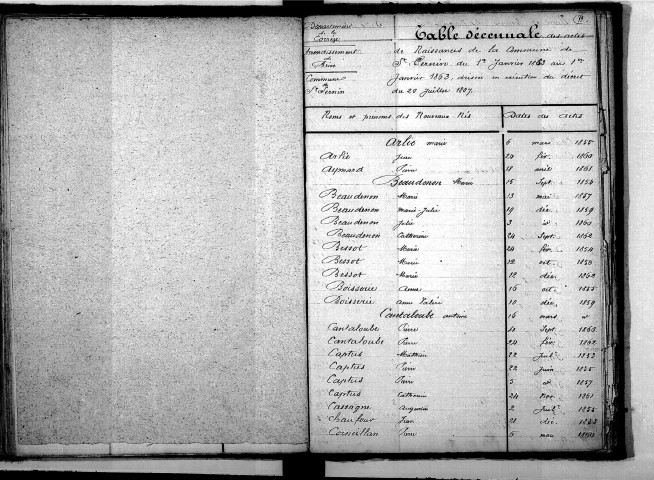 Département de la Corrèze
Arrondissement de Brive
Commune St Pernin
Table décennale des actes
de Naissances de la Commune de
St Pernin du 1er Janvier 1853 au 1er
Janvier 1863, dressée en exécution du décret
du 20 Juillet 1807.
Noms et prénoms des Nouveaux Nés Dates des actes
Arlie Marie 6 mars 1855
Arlie Jean 24 fév. 1860
Aymard Pierre 18 avril 1861
Beaudenon Marie 15 Sept. 1854
Beaudenon Marie 13 mai 1857
Beaudenon Marie-Julie 19 déc. 1859
Beaudenon Julie 3 1860
Beaudenon Catherine 24 Sept. 1862
Bessot Marie 24 fév. 1854
Bessot Marie 12 oct. 1858
Bessot Marie 12 déc. 1862
Boisserie Anne 16 oct. 1855
Boisserie Anne 10 déc. 1859
Cantaloube antoine 16 mars
Cantaloube Pierre 4 Sept. 1860
Cantaloube Pierre 24 fév. 1862
Captus Mathieu 22 Juil. 1853
Captus Pierre 22 Juin 1855
Captus Pierre 5 1857
Captus Catherine 24 Nov. 1861
Cassagne 2 Juil. 1855
Chaufour Jean 21 déc. 1853
Corneillan 5 mai